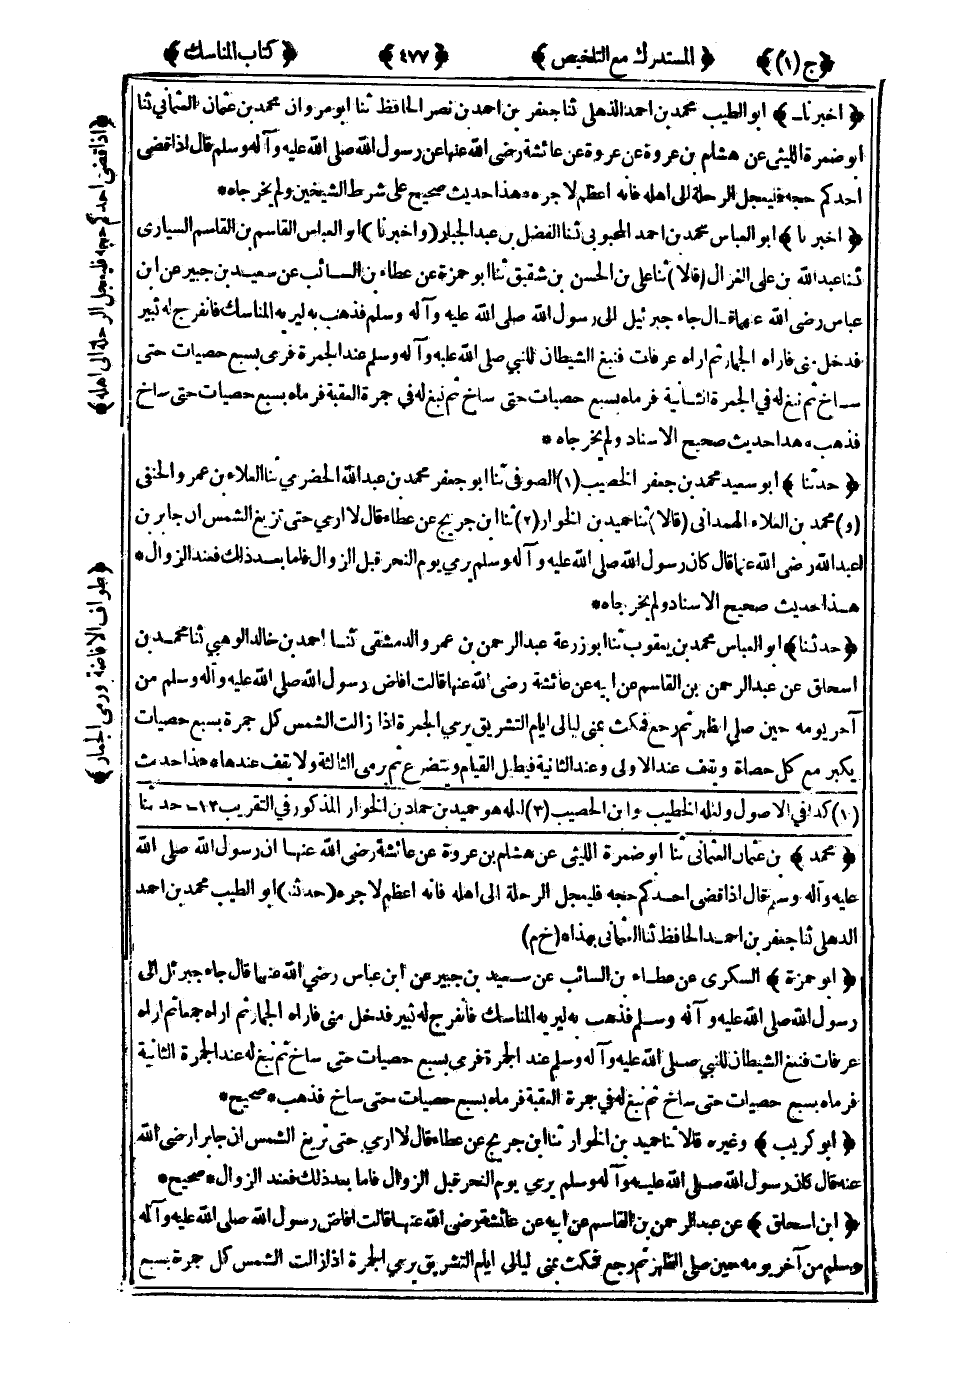 ﴿ج (١)﴾ ﴿المستدرك مع التلخيص﴾ ﴿٤٧٧﴾ ﴿كتاب المناسك﴾
﴿ اخبرنا ﴾ ابو الطيب محمد بن احمد الذهلى ثنا جعفر بن احمد بن نصر الحافظ ثنا ابو مروان محمد بن عثمان العثمانى ثنا
ابو ضمرة الليثى عن هشام بن عروة عن عروة عن عائشة رضى الله عنها عن رسول الله صلى الله عليه وآله وسلم قال اذا قضى
احدكم حجه فليعجل الرحلة الى اهله فانه اعظم لاجره * هذا حديث صحيح على شرط الشيخين ولم يخرجاه *
﴿ اخبرنا ﴾ ابو العباس محمد بن احمد المحبوبى ثنا الفضل بن عبد الجبار (واخبرنا) ابو العباس القاسم بن القاسم السيارى
ثنا عبدالله بن على الغزال (قالا) ثنا على بن الحسن بن شقيق ثنا ابو حمزة عن عطاء بن السائب عن سعيد بن جبير عن ابن
عباس رضى الله عنهما قال جاء جبرئيل الى رسول الله صلى الله عليه وآله وسلم فذهب به ليريه المناسك فانفرج له ثبير
فدخل منى فاراه الجمار ثم اراه عرفات فنبغ الشيطان للنبى صلى الله عليه وآله وسلم عند الجمرة فرمى بسبع حصيات حتى
ساخ ثم نبغ له فى الجمرة الثانية فرماه بسبع حصيات حتى ساخ ثم نبغ له فى جمرة العقبة فرماه بسبع حصيات حتى ساخ
فذهب * هذا حديث صحيح الاسناد ولم يخرجاه *
﴿ حدثنا ﴾ ابو سعيد محمد بن جعفر الخصيب (١) الصوفى ثنا ابو جعفر محمد بن عبدالله الحضرمى ثنا العلاء بن عمرو الحنفى
(و) محمد بن العلاء الهمدانى (قالا) ثنا حميد بن الخوار (٢) ثنا ابن جريج عن عطاء قال لا ارمى حتى تزيغ الشمس ان جابر بن
عبدالله رضى الله عنهما قال كان رسول الله صلى الله عليه وآله وسلم يرمى يوم النحر قبل الزوال فاما بعد ذلك فعند الزوال *
هذا حديث صحيح الاسناد ولم يخرجاه *
﴿ حدثنا ﴾ ابو العباس محمد بن يعقوب ثنا ابو زرعة عبد الرحمن بن عمرو الدمشقى ثنا احمد بن خالد الوهبى ثنا محمد بن
اسحاق عن عبد الرحمن بن القاسم عن ابيه عن عائشة رضى الله عنها قالت افاض رسول الله صلى الله عليه وآله وسلم من
آخر يومه حين صلى الظهر ثم رجع فمكث بمنى ليالى ايام التشريق يرمى الجمرة اذا زالت الشمس كل جمرة بسبع حصيات
يكبر مع كل حصاة ويقف عند الاولى وعند الثانية فيطيل القيام ويتضرع ثم يرمى الثالثة ولا يقف عندها * هذا حديث
(١) كذا فى الاصول ولعله الخطيب وابن الخصيب (٢) لعله هو حميد بن حماد بن الخوار المذكور فى التقريب ١٢- حدثنا
﴿ محمد ﴾ بن عثمان العثمانى ثنا ابو ضمرة الليثى عن هشام بن عروة عن عائشة رضى الله عنها ان رسول الله صلى الله
عليه وآله وسلم قال اذا قضى احدكم حجه فليعجل الرحلة الى اهله فانه اعظم لاجره (حدثنا) ابو الطيب محمد بن احمد
الذهلى ثنا جعفر بن احمد الحافظ ثنا العثمانى بهذا * (خ م)
﴿ ابو حمزة ﴾ السكرى عن عطاء بن السائب عن سعيد بن جبير عن ابن عباس رضى الله عنهما قال جاء جبرئل الى
رسول الله صلى الله عليه وآله وسلم فذهب به ليريه المناسك فانفرج له ثبير فدخل منى فاراه الجمار ثم اراه جمعا ثم اراه
عرفات فنبغ الشيطان للنبى صلى الله عليه وآله وسلم عند الجمرة فرمى بسبع حصيات حتى ساخ ثم نبغ له عند الجمرة الثانية
فرماه بسبع حصيات حتى ساخ ثم نبغ له فى جمرة العقبة فرماه بسبع حصيات حتى ساخ فذهب * صحيح *
﴿ ابو كريب ﴾ وغيره قالا ثنا حميد بن الخوار ثنا ابن جريج عن عطاء قال لا ارمى حتى تزيغ الشمس ان جابرا رضى الله
عنه قال كان رسول الله صلى الله عليه وآله وسلم يرمى يوم النحر قبل الزوال فاما بعد ذلك فعند الزوال * صحيح *
﴿ ابن اسحاق ﴾ عن عبد الرحمن بن القاسم عن ابيه عن عائشة رضى الله عنها قالت افاض رسول الله صلى الله عليه وآله
وسلم من آخر يومه حين صلى الظهر ثم رجع فمكث بمنى ليالى ايام التشريق يرمى الجمرة اذا زالت الشمس كل جمرة بسبع
﴿اذا قضى احدكم حجه فليعجل الرحلة الى اهله﴾
﴿طواف الافاضة ورمى الجمار﴾